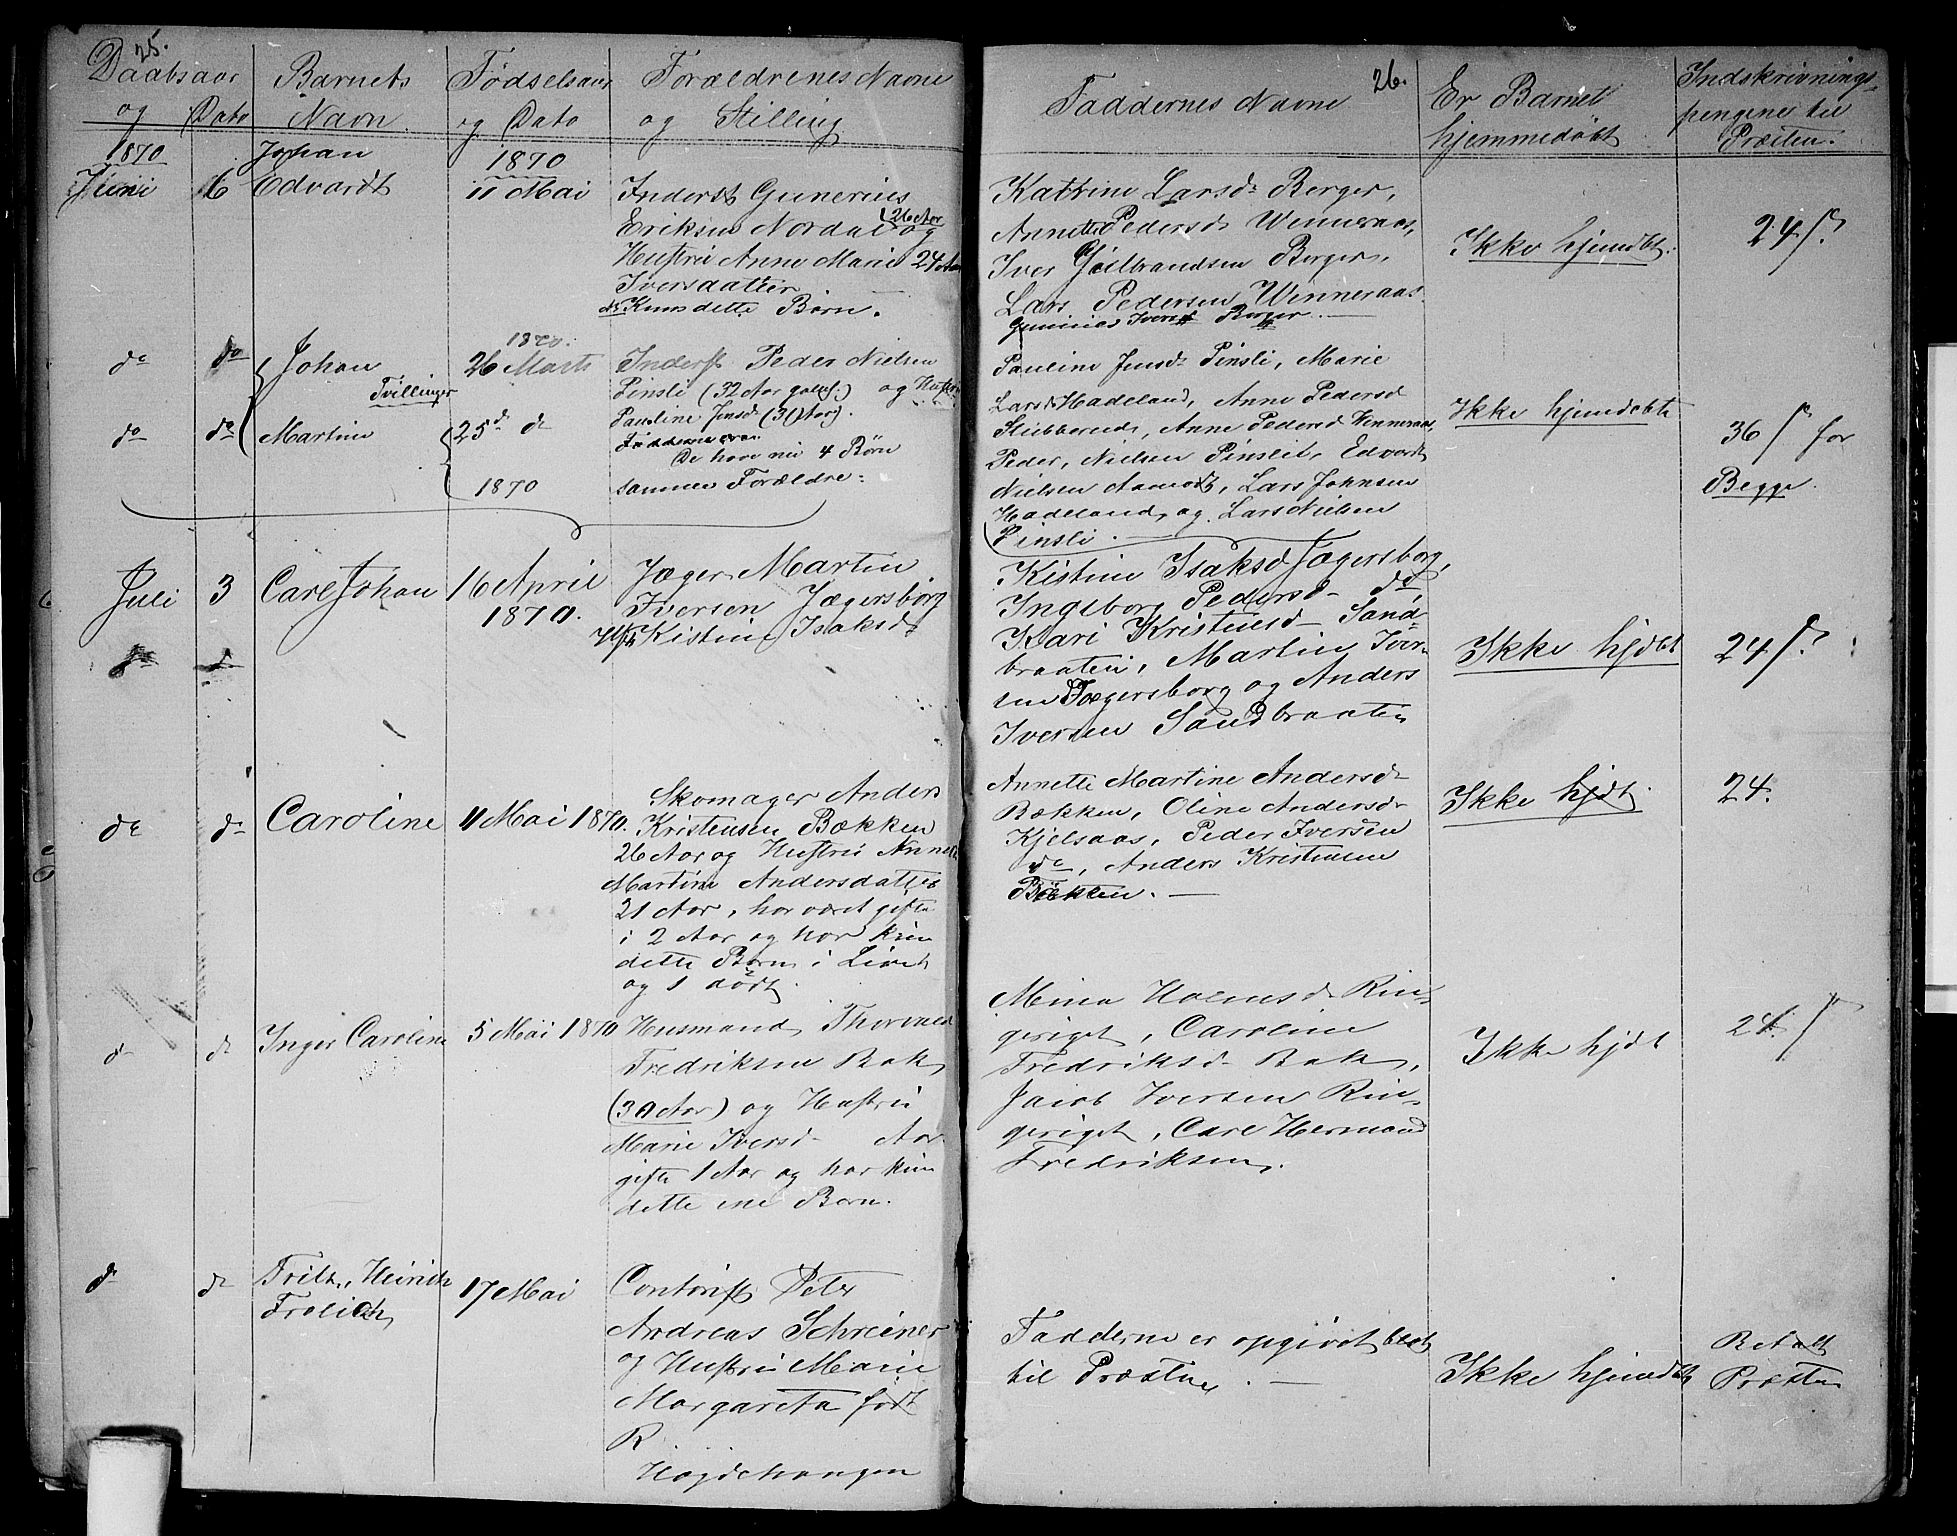 25.
Daabsaar
og Dato
Barnets
Navn
Fødselsaar
og Dato
Forældrenes Navne
og Stilling
1870
Juni 6
Johan
Edvardt
1870
11 Mai
Inderst Gunerius
Eriksen Nordal og
(26 Aar
Hustru Anne Marie 24 Aar
Iversdatter
Kuns dette Børn.
do do
Johan
Tvillinger
1870.
26 Marts
Inderst Peder Nielsen
Pinsli (32 Aar) og Hustru
Pauline Jensd (31 Aar).
do do
Martin
25de de
1870
De have nu 4 Børn
samme Forældre
Juli 3
Carl Johan
16 April
1870.
Jæger Martin
Iversen Jægersborg
Kistine Isaksd
de do
Caroline
11 Mai 1870.
Skomager Anders
Kristensen Bækken
26 Aar og Hustru Annette
Martine Andersdatter
21 Aar, har været gifte
i 2 Aar og har kun
dette Børn i Livet
og 1 dødt.
d de
Inger Caroline
5 Mai 1870
Husmand Thorvald
Fredriksen Bak
(30 Aar) og Hustru
Marie Iversd Aar
gifte 1 Aar og har kun
dette ene Børn.
d de
Fritz, Heinrich
Frolich
17 Mai
Contorist Peter
Andreas Schreiner
og Hustru Marie
Margareta født
R
Høgdehaugen
26.
Faddernes Navne
Er Barnet
hjemmedøbt
Indskrivnings-
pengene til
Præsten.
Katrine Larsd Berger,
Annette Pedersd Wenneraas,
Iver Gulbrandsen Berger,
Lars Pedersen Wenneraas
Gunerius Iversen Berger.
Ikke hjemdbt.
24 s.
Pauline Jensd Pinsli, Marie
Larsd Hadeland, Anne Pedersd
Stubberud, Anne Pedersd Wenneraas,
Peder, Nielsen Pinsli, Edvard
Nielsen Aamodt, Lars Johnsen
Hadeland, og Lars Nielsen
Pinsli.
Ikke hjemdøbte
36 s for
Begge.
Kistine Isaksd Jægersborg,
Ingeborg Pedersd do,
Kari Kristensd Sand-
braaten, Martin Iver-
sen Jægersborg og Anders
Iversen Sandbraaten
Ikke hjdbt
24 s.
Annette Martine Andersd
Bækken, Oline Andersd
Kjelsaas, Peder Iversen
do, Anders Kristensen
Bækken.
Ikke hjdt.
24.
Mina Holmesd Rin-
geriget, Caroline
Fredriksd Bak,
Jacob Iversen Rin-
geriget, Carl Herman
Fredriksen.
Ikke hjdt
24 s
Fadderne er opgivet blot
til Præsten.
Ikke hjemdbt
Betalt
Præsten